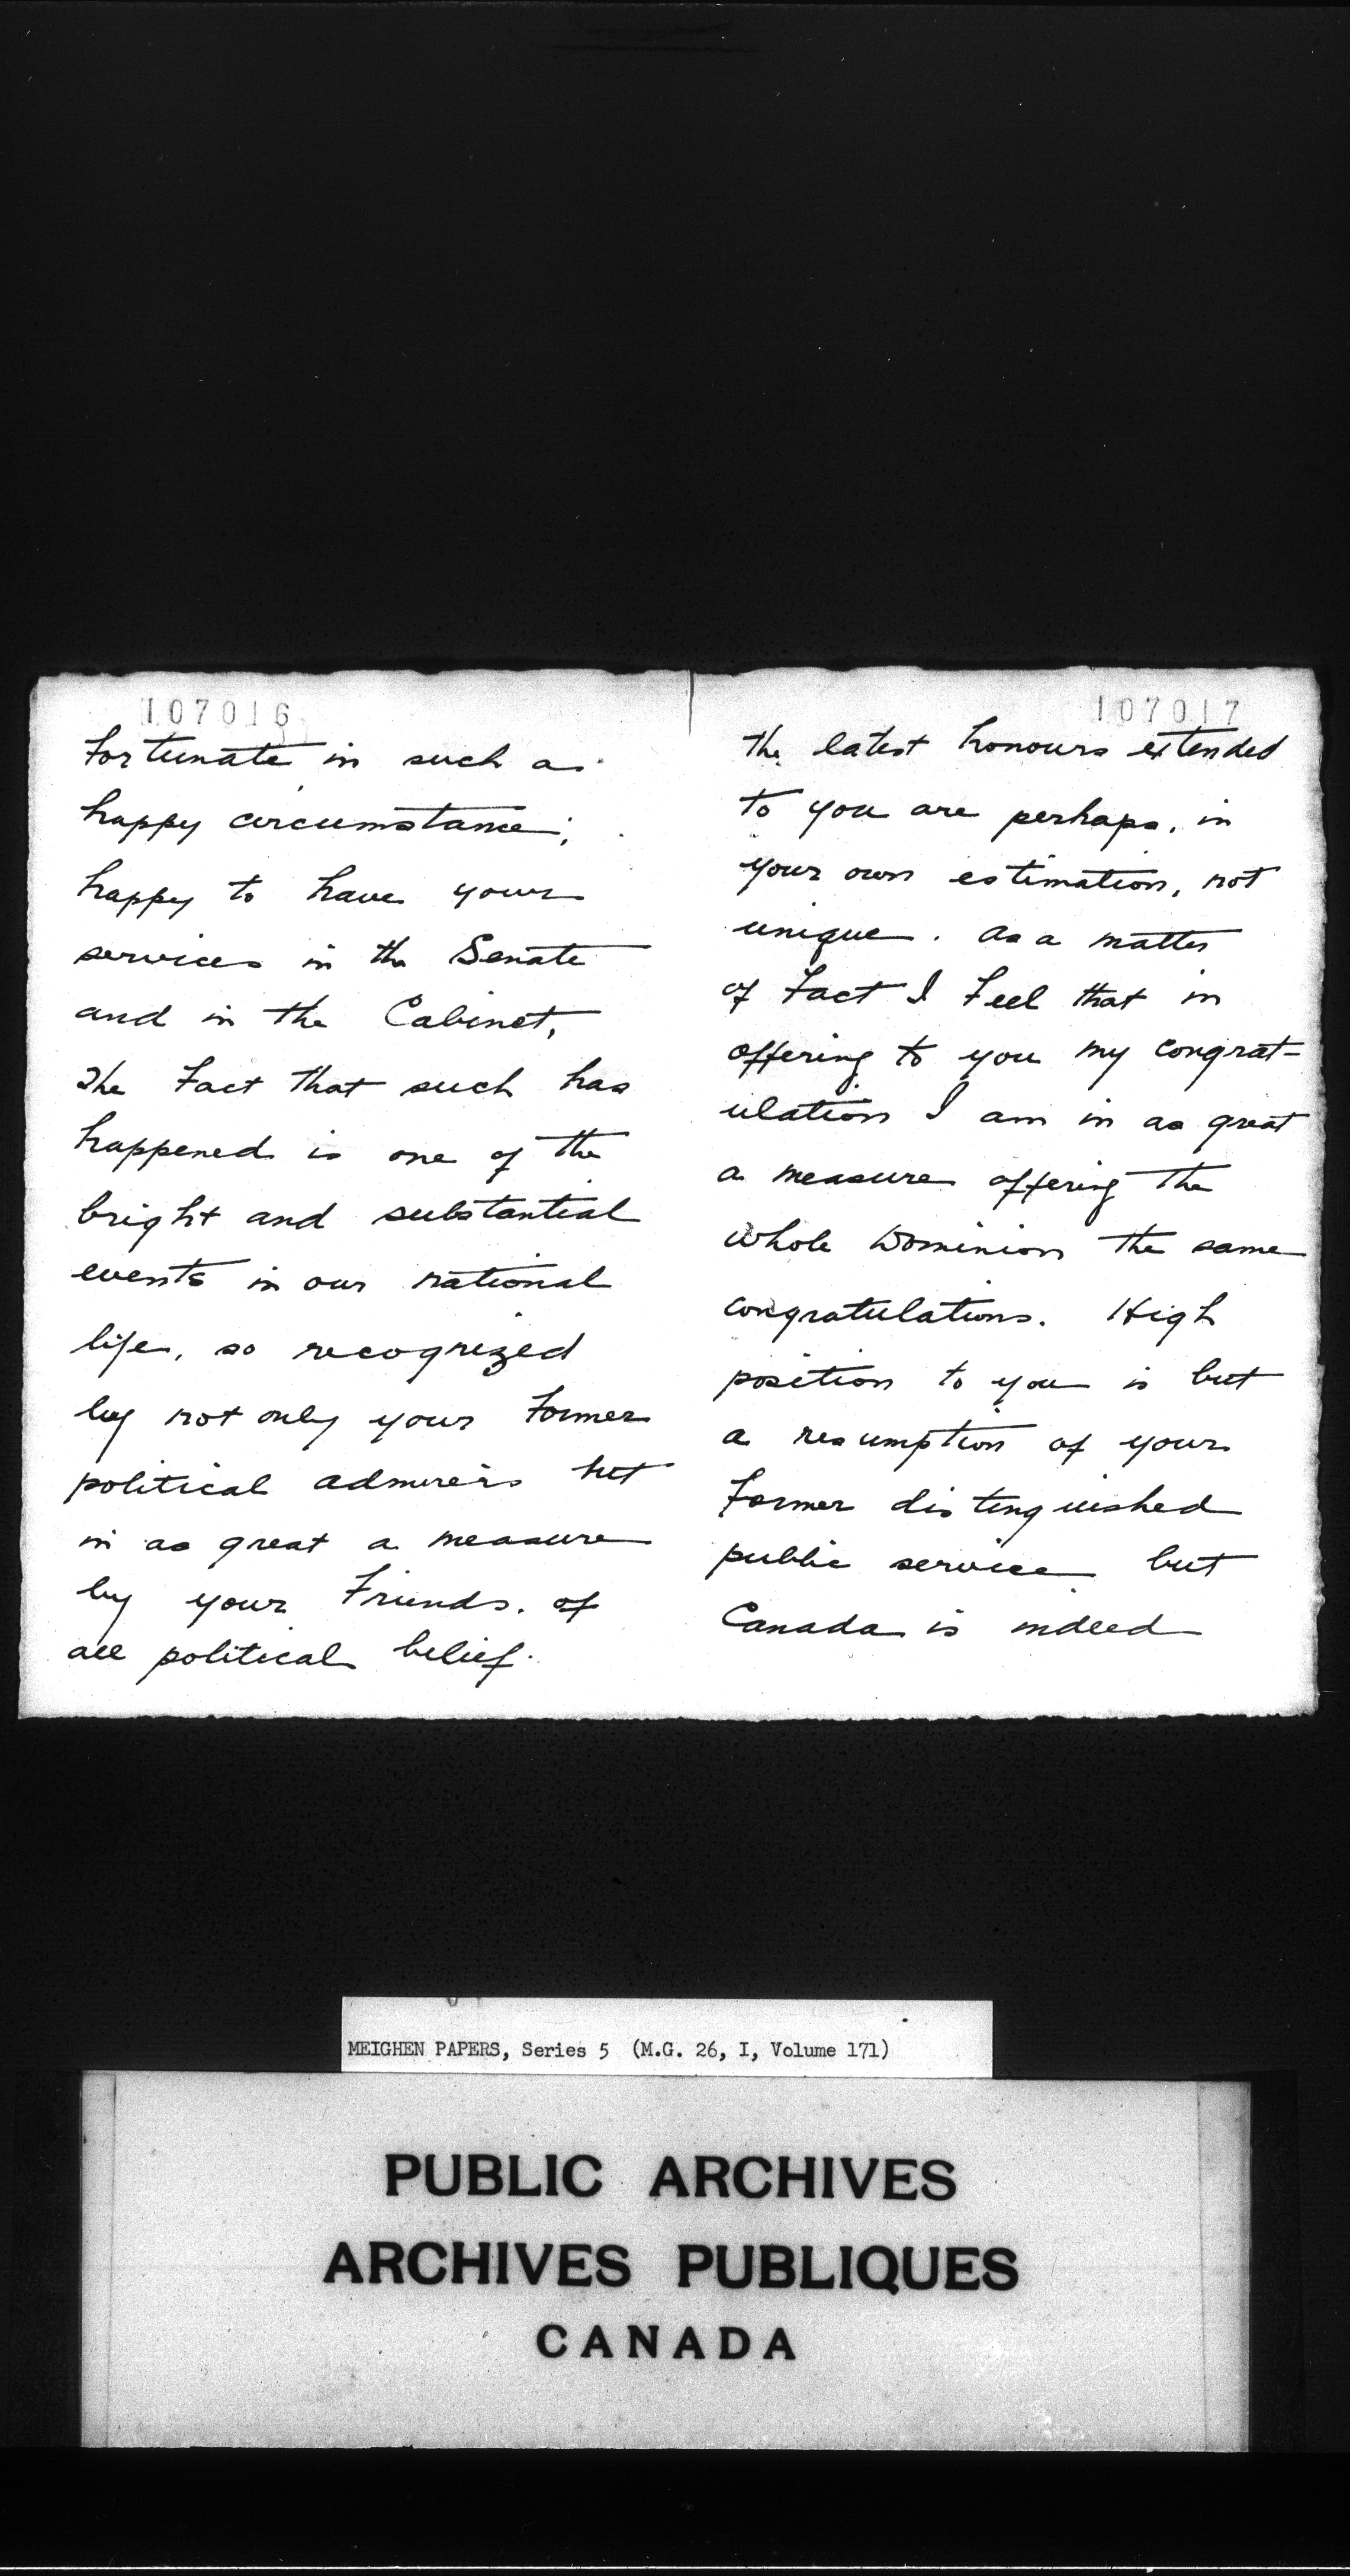 107016
fortunate in such a
happy circumstance;
happy to have your
services in the Senate
and in the Cabinet.
The fact that such has
happened is one of the
bright and substantial
events in our national
life, so recognized
by not only your former
political admirers but
in as great a measure
by your friends of
all political belief.
107017
The latest honours extended
to you are perhaps, in
your own estimation, not
unique. As a matter
of fact I feel that in
offering to you my congrat-
ulation I am in as great
a measure offering the
whole Dominion the same
congratulations. High
position to you is but
a resumption of your
former distinguished
public service but
Canada is indeed
MEIGHEN PAPERS, Series 5 (M.G. 26, I, Volume 171)
PUBLIC ARCHIVES
ARCHIVES PUBLIQUES
CANADA